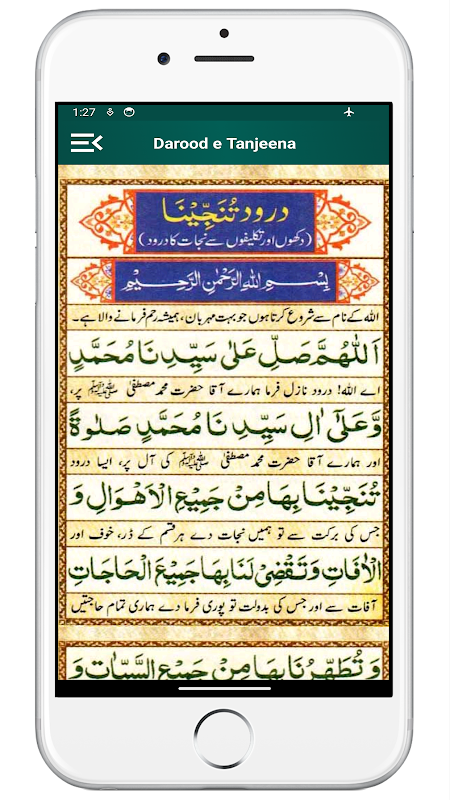 1:27
Darood e Tanjeena
درود تُنَجِّينَا
(دکھوں اور تکلیفوں سے نجات کا درود)
بِسْمِ اللهِ الرَّحْمٰنِ الرَّحِيْمِ
اللہ کے نام سے شروع کرتا ہوں جو بہت مہربان، ہمیشہ رحم فرمانے والا ہے۔
اَللّٰهُمَّ صَلِّ عَلٰى سَيِّدِنَا مُحَمَّدٍ
اے اللہ! درود نازل فرما ہمارے آقا حضرت محمد مصطفیٰ ﷺ پر،
وَّعَلٰٓى اٰلِ سَيِّدِنَا مُحَمَّدٍ صَلٰوةً
اور ہمارے آقا حضرت محمد مصطفیٰ ﷺ کی آل پر، ایسا درود
تُنَجِّيْنَا بِهَا مِنْ جَمِيْعِ الْاَهْوَالِ وَ
جس کی برکت سے تو ہمیں نجات دے ہر قسم کے ڈر، خوف اور
الْاٰفَاتِ وَتَقْضِىْ لَنَا بِهَا جَمِيْعَ الْحَاجَاتِ
آفات سے اور جس کی بدولت تو پوری فرما دے ہماری تمام حاجتیں
وَتُطَهِّرُنَا بِهَا مِنْ جَمِيْعِ السَّيِّاٰتِ وَ